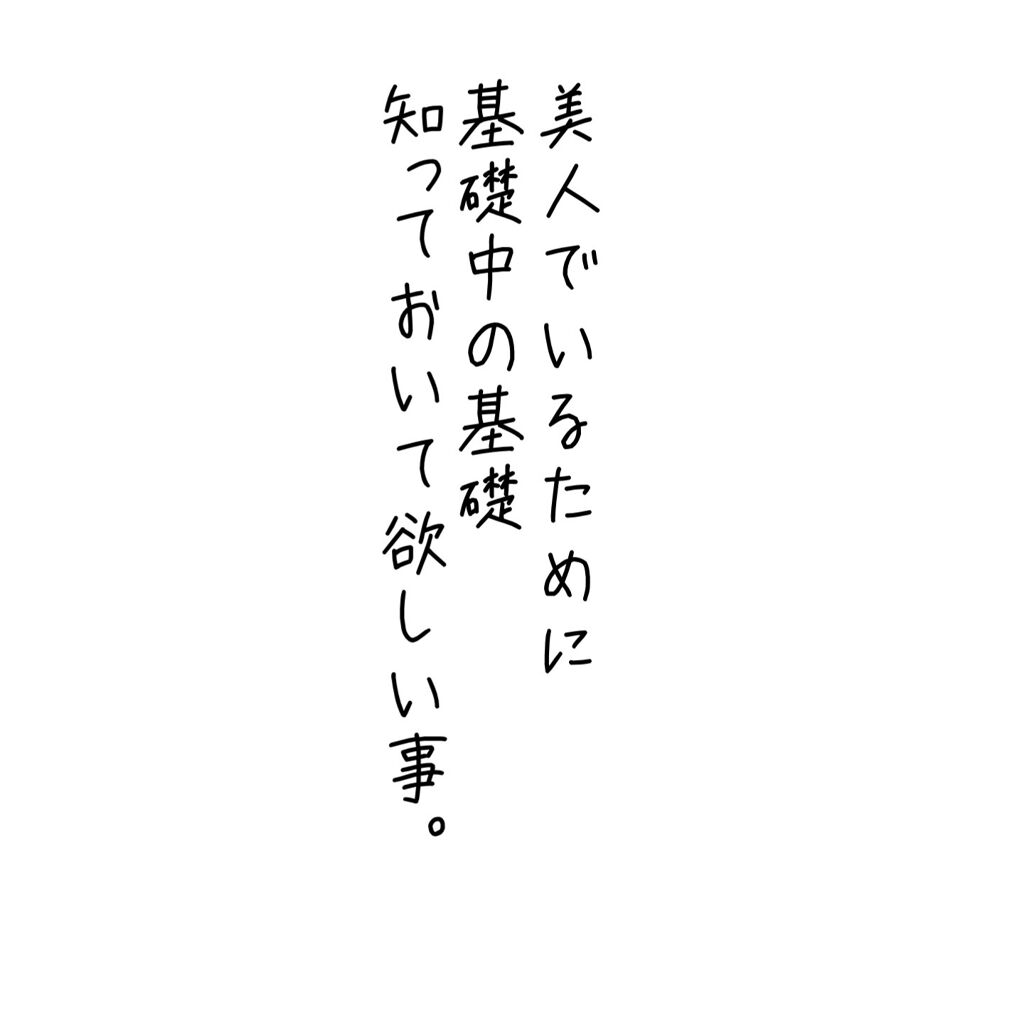 美人でいるために
基礎中の基礎
知っておいて欲しい事。